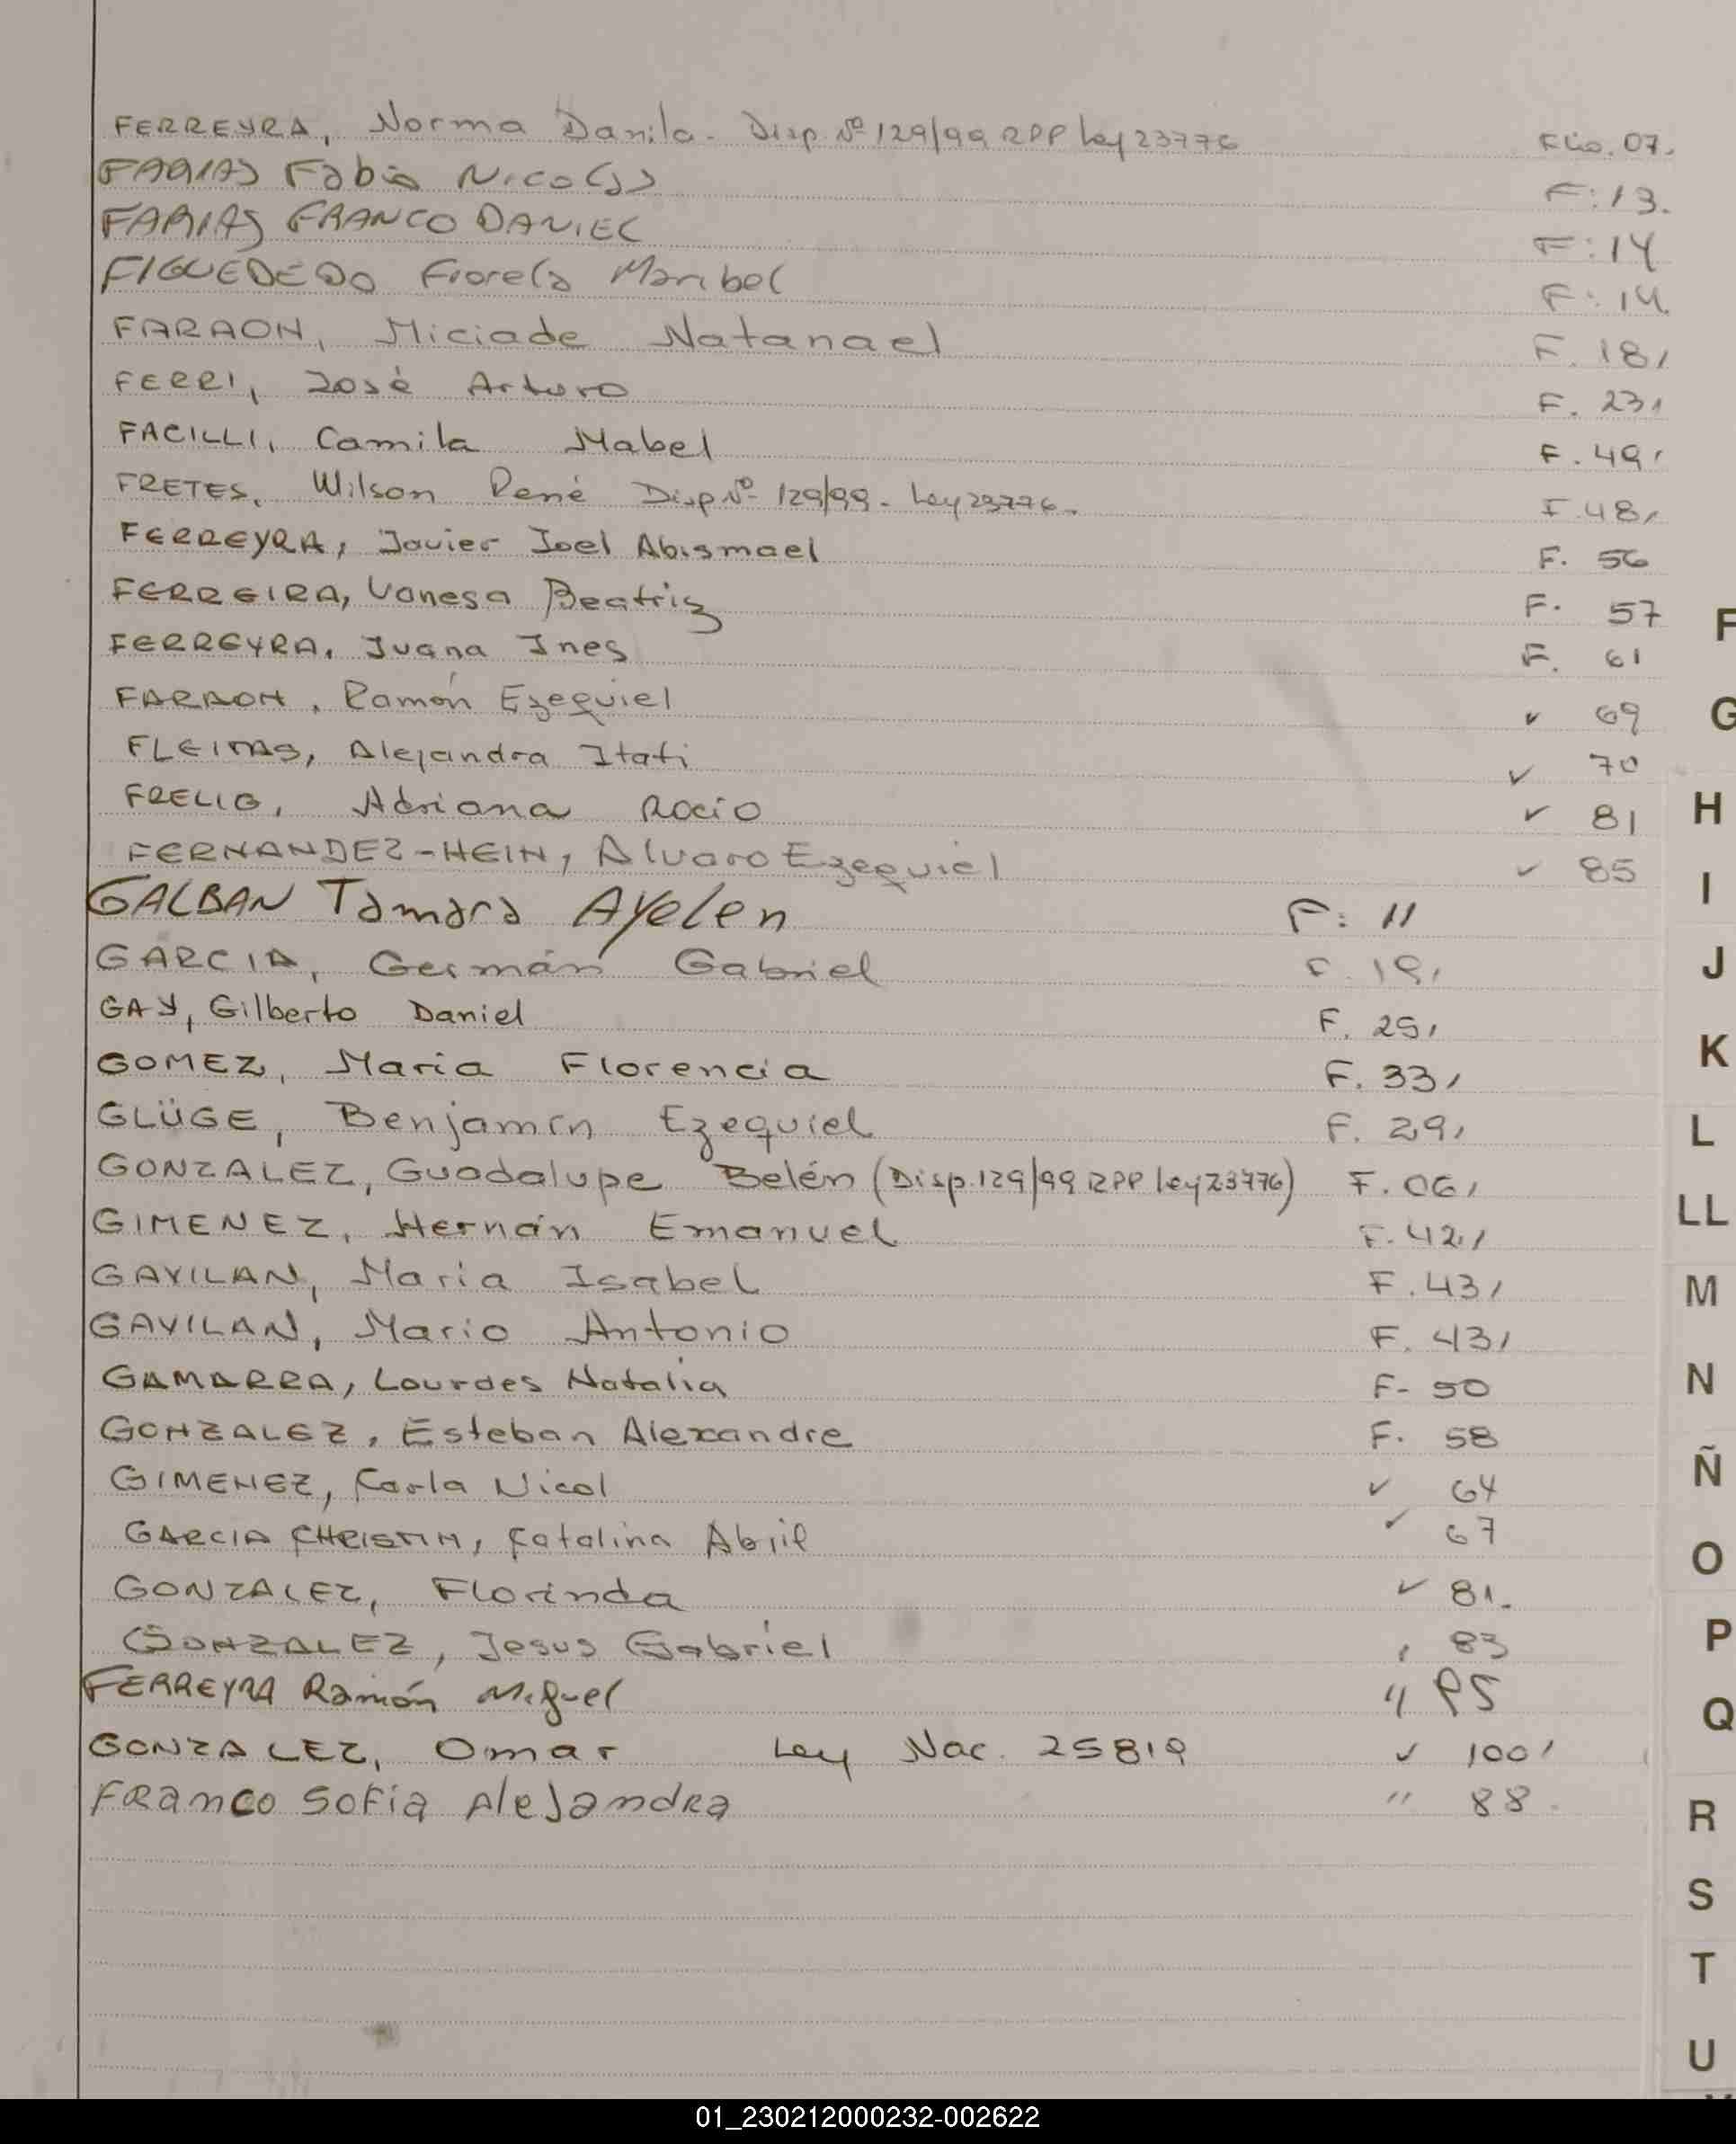 FERREYRA, Norma Danila. Disp. Nº 129/99 RPP Ley 23776 Flio. 07.
FARIAS Fabio Nicolas F: 13.
FARIAS FRANCO DANIEL F: 14
FIGUEDEDO Fiorela Maribel F: 14.
FARAON, Miciade Natanael F. 18,
FERRI, José Arturo F. 23,
FACILLI, Camila Mabel F. 49,
FRETES, Wilson René Disp Nº 129/99. Ley 23776. F. 48,
FERREYRA, Javier Joel Abismael F. 56
FERREIRA, Vanesa Beatriz F. 57
FERREYRA, Juana Ines F. 61
FARAON, Ramón Ezequiel ✓ 69
FLEITAS, Alejandra Itati ✓ 70
FRELIG, Adriana Rocio ✓ 81
FERNANDEZ-HEIN, Alvaro Ezequiel ✓ 85
GALBAN Tamara Ayelen F: 11
GARCIA, Germán Gabriel F. 19,
GAY, Gilberto Daniel F. 25,
GOMEZ, Maria Florencia F. 33,
GLÜGE, Benjamin Ezequiel F. 29,
GONZALEZ, Guadalupe Belén (Disp. 129/99 RPP ley 23776) F. 06,
GIMENEZ, Hernán Emanuel F. 42,
GAVILAN, Maria Isabel F. 43,
GAVILAN, Mario Antonio F. 43,
GAMARRA, Lourdes Natalia F- 50
GONZALEZ, Esteban Alexandre F. 58
GIMENEZ, Karla Nicol ✓ 64
GARCIA CHRISTIN, Catalina Abril ✓ 67
GONZALEZ, Florinda ✓ 81.
GONZALEZ, Jesus Gabriel , 83
FERREYRA Ramón Miguel "
GONZALEZ, Omar Ley Nac. 25819 ✓ 100,
FRANCO SOFia AleJandRa " 88.
F
G
H
I
J
K
L
LL
M
N
Ñ
O
P
Q
R
S
T
U
01_230212000232-002622